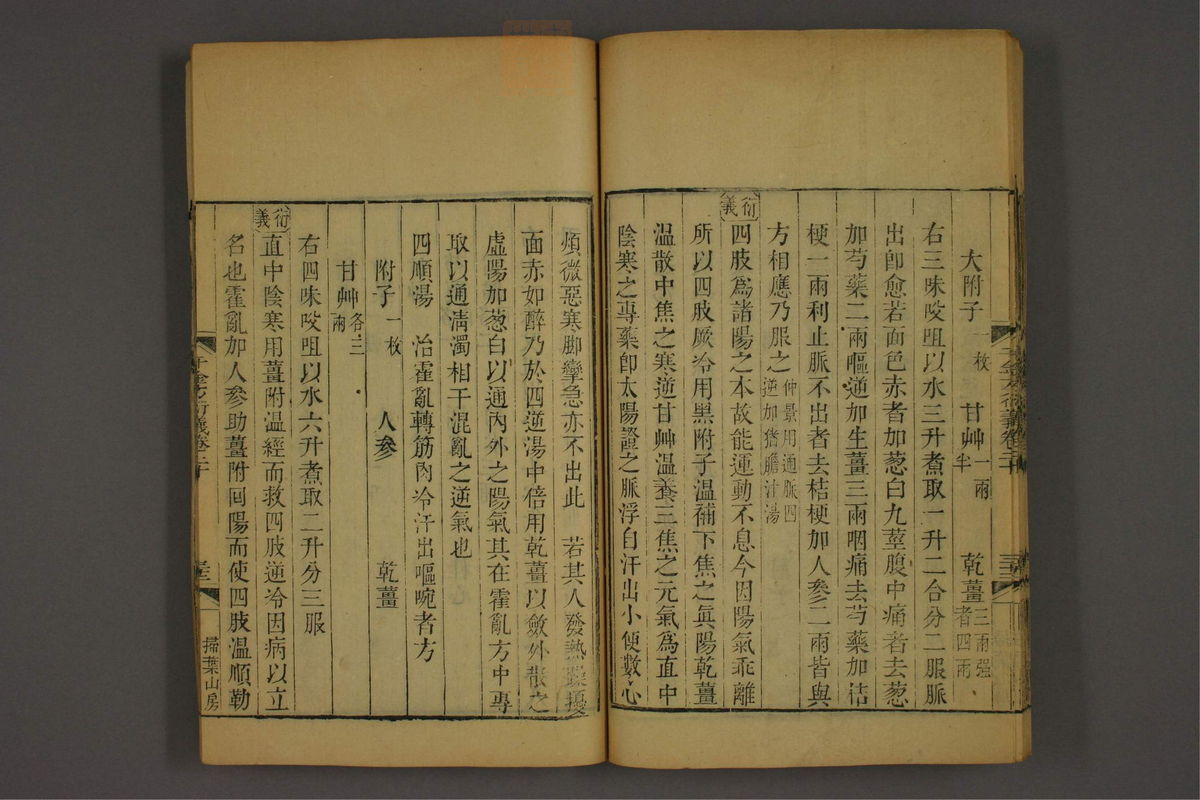 大附子一枚 甘艸一兩半 乾薑三兩强者四兩
右三味㕮咀以水三升煮取一升二合分二服脈
出卽愈若面色赤者加葱白九莖腹中痛者去葱
加芍藥二兩嘔逆加生薑三兩咽痛去芍藥加桔
梗一兩利止脈不出者去桔梗加人參二兩皆與
方相應乃服之仲景用通脈四逆加猪膽汁湯
衍義
四肢爲諸陽之本故能運動不息今因陽氣乖離
所以四肢厥冷用黑附子溫補下焦之眞陽乾薑
溫散中焦之寒逆甘艸溫養三焦之元氣爲直中
陰寒之專藥卽太陽證之脈浮自汗出小便數心
煩微惡寒脚攣急亦不出此 若其人發熱躁擾
面赤如醉乃於四逆湯中倍用乾薑以斂外散之
虛陽加葱白以通內外之陽氣其在霍亂方中專
取以通淸濁相干混亂之逆氣也
四順湯 治霍亂轉筋肉冷汗出嘔啘者方
附子一枚 人參 乾薑
甘艸各三兩
右四味㕮咀以水六升煮取二升分三服
衍義
直中陰寒用薑附溫經而救四肢逆冷因病以立
名也霍亂加人參助薑附囘陽而使四肢溫順勒
千金方衍義卷二十
掃葉山房